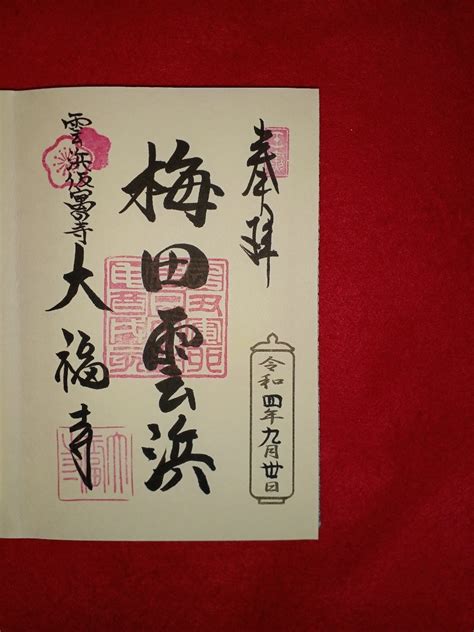 奉拝
令和四年九月廿日
梅田雲浜
雲浜仮寓寺
大福寺